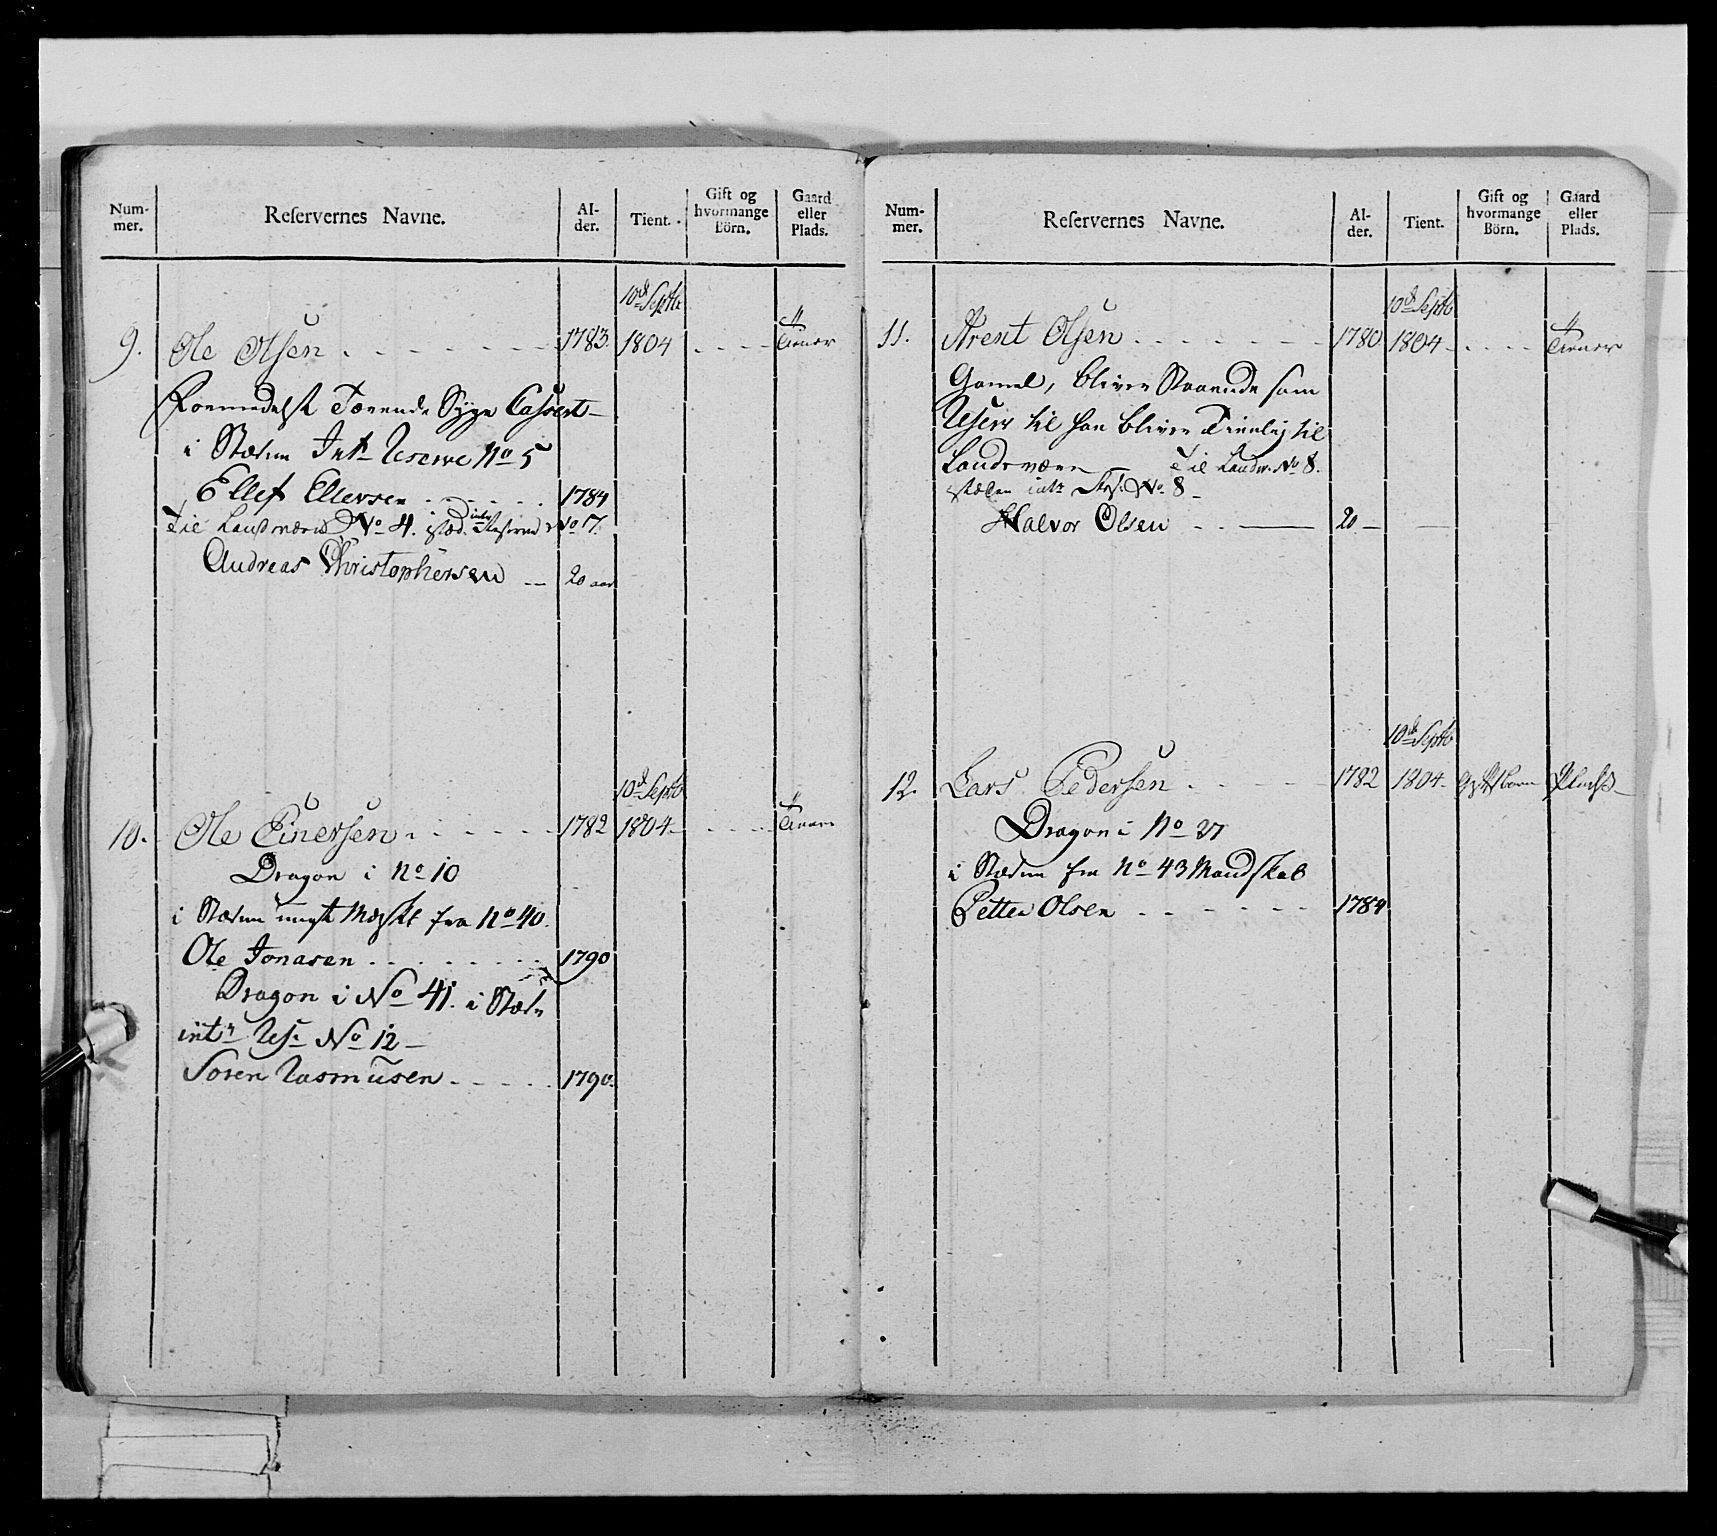 Num-
mer.
Reservernes Navne.
Al-
der.
Tient.
Gift og
hvormange
Börn.
Gaard
eller
Plads.
9. Ole Olsen 1783. 10de Septb 1804 Tiener
Tærende Syge Cassert
i Stæden Intr Reserve No 5
Ellef Ellevsen 1784
Til Landværnd No 4. i stæd. intr Reserve No 17.
Andreas Christophersen 20 aar
10. Ole Einersen 1782 10de Septb 1804 Tiener
Dragon i No 10
i Stæden ungt Mdskb fra No 40.
Ole Jonasen 1790
Dragon i No 41. i Stæden
intr Res: No 12
Soren Rasmusen 1790.
Num-
mer.
Reservernes Navne.
Al-
der.
Tient.
Gift og
hvormange
Börn.
Gaard
eller
Plads.
11. Arent Olsen 1780 10de Septb 1804 Tiener
Gamel, bliver Staaende som
Reserv til han bliver Tienlig til
Landeværn Til Landv. No 8.
stæden intr Res. No 8
Halvor Olsen 20
12. Lars Pedersen 1782 10de Septb 1804 Plads
Dragon i No 27
i Stæden fra No 43 Mandskab
Petter Olsen 1784